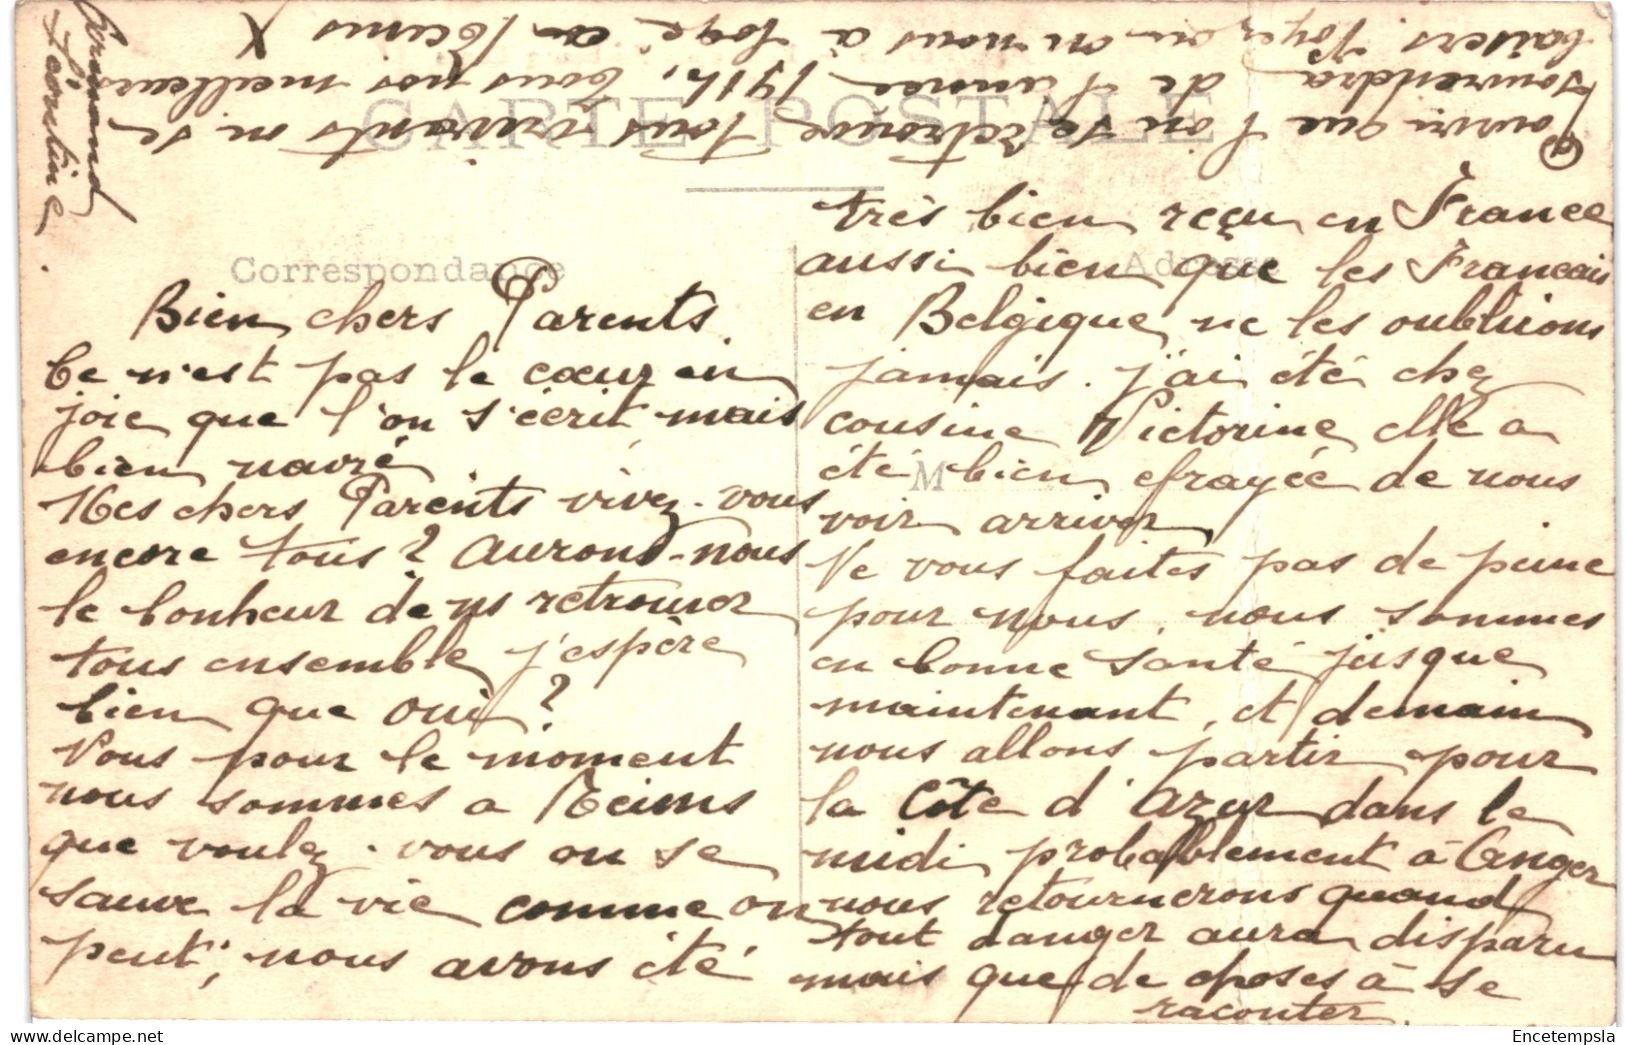 CARTE POSTALE
Correspondance
Adresse
M
Bien chers Parents
Ce n'est pas le cœur en
joie que l'on s'écrit mais
bien navré
Mes chers Parents vivez-vous
encore tous ? aurons-nous
le bonheur de ns retrouver
tous ensemble j'espère
bien que oui ?
Vous pour le moment
nous sommes a Reims
que voulez-vous on se
sauve la vie comme on
peut ; nous avons été
très bien reçu en France
aussi bien que les Francais
en Belgique ne les oublions
jamais. j'ai été chez
cousine Victorine elle a
été bien efrayée de nous
voir arriver
Ne vous faites pas de peine
pour nous, nous sommes
en bonne santé jusque
maintenant, et demain
nous allons partir pour
la Côte d'azur dans le
midi probablement à Anger
nous retournerons quand
tout danger aura disparu
mais que de choses à se
raconter.
Pourvu que l'on se retrouve tous vivants on se
souviendra de l'année 1914, tous nos meilleurs
baisers. on nous a logé a Reims X
Armand
Léontine
Encetempsla